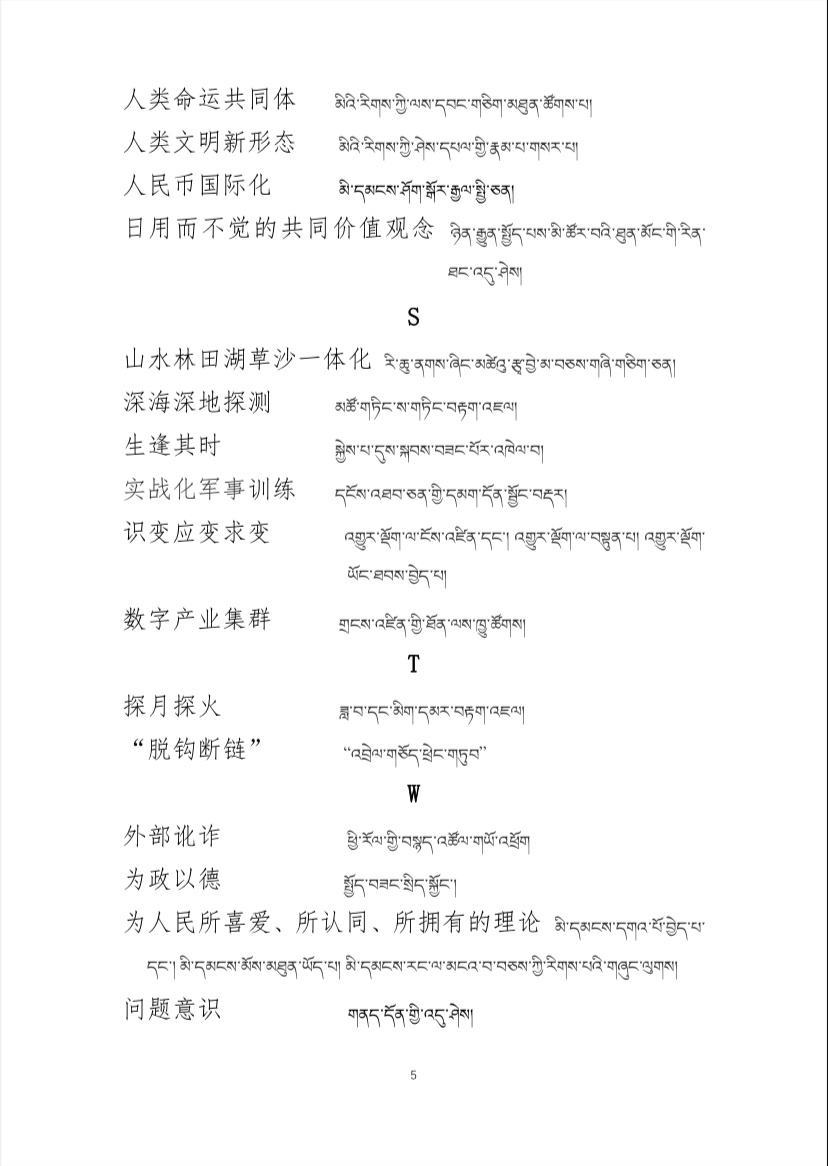 人类命运共同体 མིའི་རིགས་ཀྱི་ལས་དབང་གཅིག་མཐུན་ཚོགས་པ།
人类文明新形态 མིའི་རིགས་ཀྱི་ཤེས་དཔལ་གྱི་རྣམ་པ་གསར་པ།
人民币国际化 མི་དམངས་ཤོག་སྒོར་རྒྱལ་སྤྱི་ཅན།
日用而不觉的共同价值观念 ཉིན་རྒྱུན་སྤྱོད་པས་མི་ཚོར་བའི་ཐུན་མོང་གི་རིན་
ཐང་འདུ་ཤེས།
S
山水林田湖草沙一体化 རི་ཆུ་ནགས་ཞིང་མཚེའུ་རྩྭ་བྱེ་མ་བཅས་གཞི་གཅིག་ཅན།
深海深地探测 མཚོ་གཏིང་ས་གཏིང་བརྟག་འཇལ།
生逢其时 སྐྱེས་པ་དུས་སྐབས་བཟང་པོར་འཁེལ་བ།
实战化军事训练 དངོས་འཐབ་ཅན་གྱི་དམག་དོན་སྦྱོང་བརྡར།
识变应变求变 འགྱུར་ལྡོག་ལ་ངོས་འཛིན་དང་། འགྱུར་ལྡོག་ལ་བསྟུན་པ། འགྱུར་ལྡོག་
ཡོང་ཐབས་བྱེད་པ།
数字产业集群 གྲངས་འཛིན་གྱི་ཐོན་ལས་ཁྱུ་ཚོགས།
T
探月探火 ཟླ་བ་དང་མིག་དམར་བརྟག་འཇལ།
“脱钩断链” “འབྲེལ་གཅོད་ཕྲེང་གཏུབ”
W
外部讹诈 ཕྱི་རོལ་གྱི་བསྙད་འཚོལ་གཡོ་འཕྲོག
为政以德 སྤྱོད་བཟང་སྲིད་སྐྱོང་།
为人民所喜爱、所认同、所拥有的理论 མི་དམངས་དགའ་པོ་བྱེད་པ་
དང་། མི་དམངས་མོས་མཐུན་ཡོད་པ། མི་དམངས་རང་ལ་མངའ་བ་བཅས་ཀྱི་རིགས་པའི་གཞུང་ལུགས།
问题意识 གནད་དོན་གྱི་འདུ་ཤེས།
5